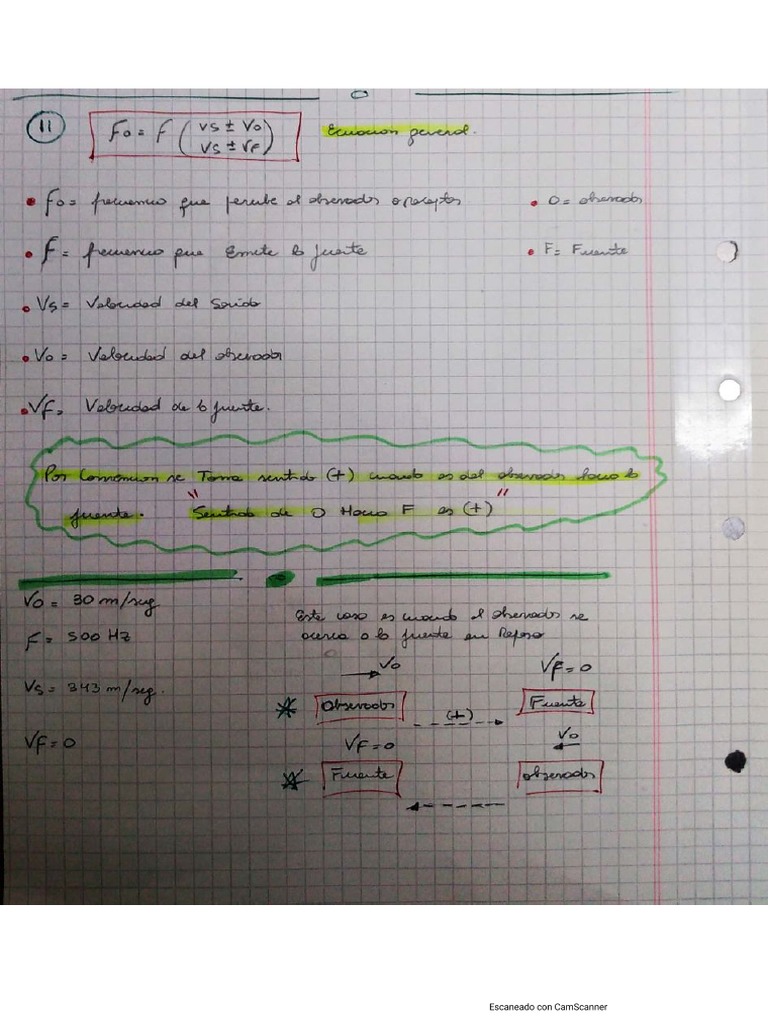 11 Fo = F ( Vs ± Vo / Vs ± VF ) Ecuacion general.
• Fo = frecuencia que percibe el observador o receptor • O = observador
• F = frecuencia que Emite la fuente • F = Fuente
• Vs = Velocidad del Sonido
• Vo = Velocidad del observador
• VF = Velocidad de la fuente.
Por Convencion se Toma sentido (+) cuando es del observador hacia la
fuente. "Sentido de O Hacia F es (+)"
Vo = 30 m/seg
F = 500 Hz
Vs = 343 m/seg.
VF = 0
Este caso es cuando el observador se
acerca a la fuente en Reposo
Vo VF = 0
Observador (+) Fuente
VF = 0 Vo
Fuente observador
Escaneado con CamScanner